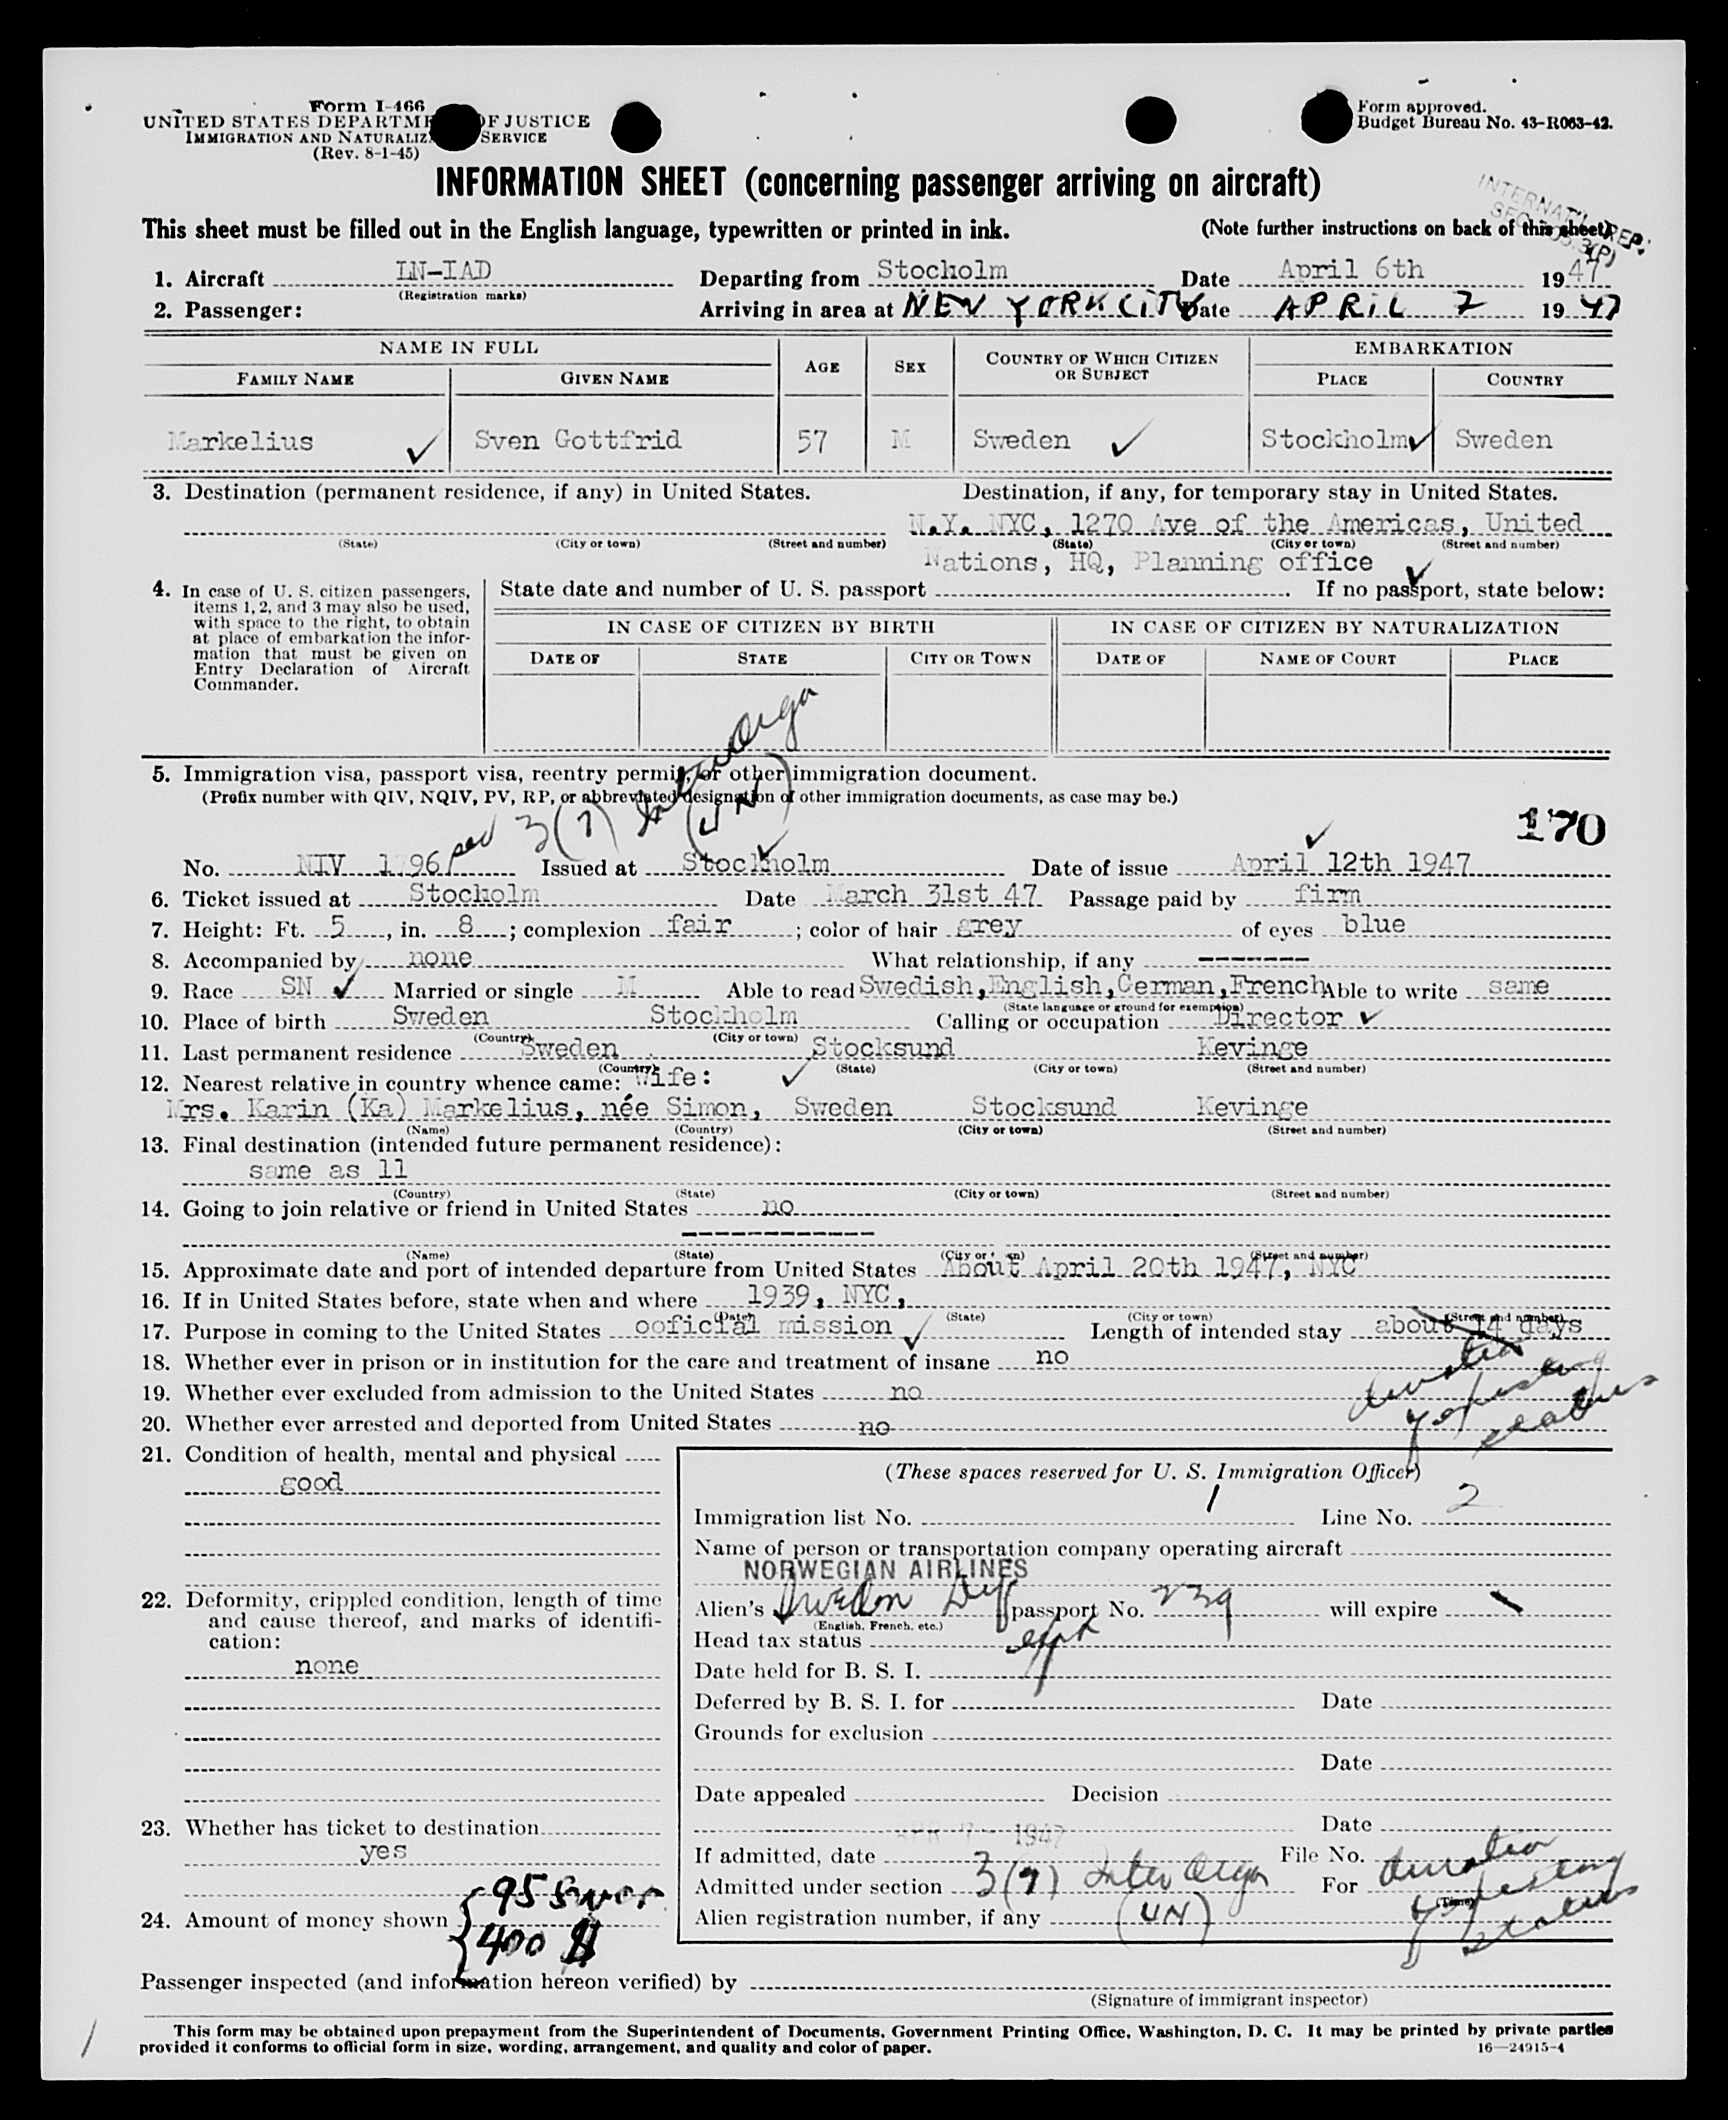 Form I-466
UNITED STATES DEPARTME OF JUSTICE
IMMIGRATION AND NATURALIZ SERVICE
(Rev. 8-1-45)
Form approved.
Budget Bureau No. 43-R063-42.
INFORMATION SHEET (concerning passenger arriving on aircraft)
This sheet must be filled out in the English language, typewritten or printed in ink. (Note further instructions on back of this sheet)
1. Aircraft LN-IAD Departing from Stocholm Date April 6th 1947
(Registration marks)
2. Passenger: Arriving in area at NEW YORK CITY Date APRIL 7 1947
NAME IN FULL AGE SEX COUNTRY OF WHICH CITIZEN OR SUBJECT EMBARKATION
FAMILY NAME GIVEN NAME PLACE COUNTRY
Markelius Sven Gottfrid 57 M Sweden Stockholm Sweden
3. Destination (permanent residence, if any) in United States. Destination, if any, for temporary stay in United States.
N.Y. NYC, 1270 Ave of the Americas, United
(State) (City or town) (Street and number) (State) (City or town) (Street and number)
Nations, HQ, Planning office
4. In case of U. S. citizen passengers, items 1, 2, and 3 may also be used, with space to the right, to obtain at place of embarkation the information that must be given on Entry Declaration of Aircraft Commander.
State date and number of U. S. passport If no passport, state below:
IN CASE OF CITIZEN BY BIRTH IN CASE OF CITIZEN BY NATURALIZATION
DATE OF STATE CITY OR TOWN DATE OF NAME OF COURT PLACE
5. Immigration visa, passport visa, reentry permit, or other immigration document.
(Prefix number with QIV, NQIV, PV, RP, or abbreviated designation of other immigration documents, as case may be.)
sec 3(7) Inter Orga
(UN)
170
No. NIV 1796 Issued at Stockholm Date of issue April 12th 1947
6. Ticket issued at Stocholm Date March 31st 47 Passage paid by firm
7. Height: Ft. 5, in. 8; complexion fair; color of hair grey of eyes blue
8. Accompanied by none What relationship, if any --------
9. Race SN Married or single M Able to read Swedish, English, German, French Able to write same
(State language or ground for exemption)
10. Place of birth Sweden Stockholm Calling or occupation Director
(Country) (City or town)
11. Last permanent residence Sweden Stocksund Kevinge
(Country) (State) (City or town) (Street and number)
12. Nearest relative in country whence came: Wife:
Mrs. Karin (Ka) Markelius, née Simon, Sweden Stocksund Kevinge
(Name) (Country) (City or town) (Street and number)
13. Final destination (intended future permanent residence):
same as 11
(Country) (State) (City or town) (Street and number)
14. Going to join relative or friend in United States no
------------
(Name) (State) (City or town) (Street and number)
15. Approximate date and port of intended departure from United States About April 20th 1947, NYC
16. If in United States before, state when and where 1939, NYC,
(Date) (State) (City or town) (Street and number)
17. Purpose in coming to the United States ooficial mission Length of intended stay about 14 days
18. Whether ever in prison or in institution for the care and treatment of insane no
19. Whether ever excluded from admission to the United States no
20. Whether ever arrested and deported from United States no
21. Condition of health, mental and physical
good
22. Deformity, crippled condition, length of time and cause thereof, and marks of identification:
none
23. Whether has ticket to destination
yes
24. Amount of money shown 400 $
(These spaces reserved for U. S. Immigration Officer)
Immigration list No. 1 Line No. 2
Name of person or transportation company operating aircraft
NORWEGIAN AIRLINES
Alien's Sweden Dip passport No. 239 will expire
(English, French, etc.)
Head tax status
Date held for B. S. I.
Deferred by B. S. I. for Date
Grounds for exclusion
Date
Date appealed Decision
Date
If admitted, date APR 7 - 1947 File No.
Admitted under section 3(7) Inter Orga For
(Time)
Alien registration number, if any (UN)
Passenger inspected (and information hereon verified) by
(Signature of immigrant inspector)
This form may be obtained upon prepayment from the Superintendent of Documents, Government Printing Office, Washington, D. C. It may be printed by private parties
provided it conforms to official form in size, wording, arrangement, and quality and color of paper.
16—24915-4